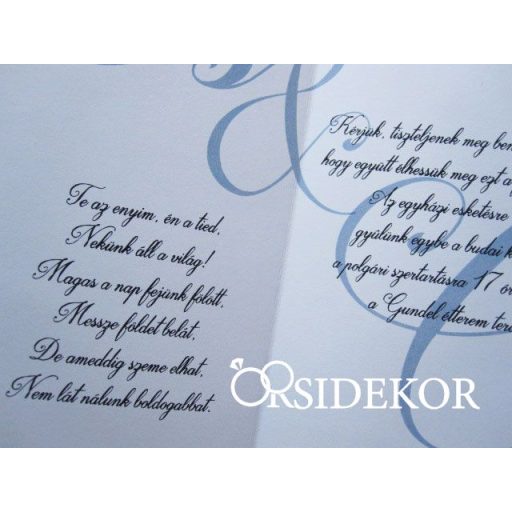 Te az enyim, én a tied,
Nekünk áll a világ!
Magas a nap fejünk fölött,
Messze földet belát,
De ameddig szeme elhat,
Nem lát nálunk boldogabbat.
Kérjük, tiszteljenek meg ben
hogy együtt élhessük meg ezt a
Az egyházi esketésre
gyűlünk egybe a budai k
a polgári szertartásra 17 ór
a Gundel étterem ter
ORSIDEKOR